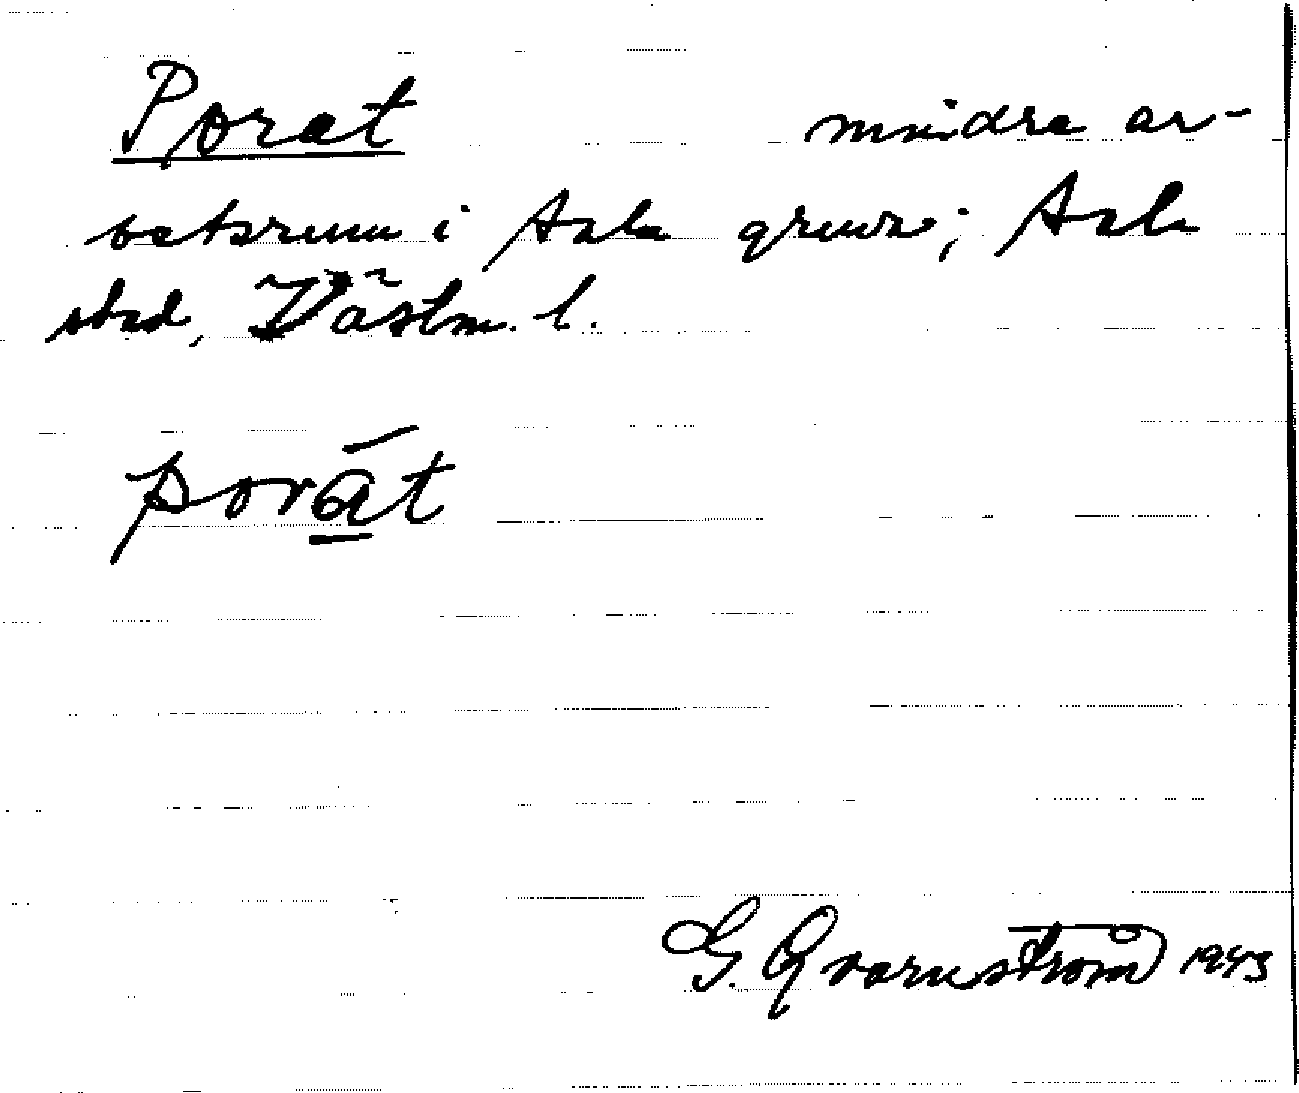 Porat mindre ar-
betsrum i Sala gruva; Sala
stad, Västm. l.
porat
G. Qvarnström 1943